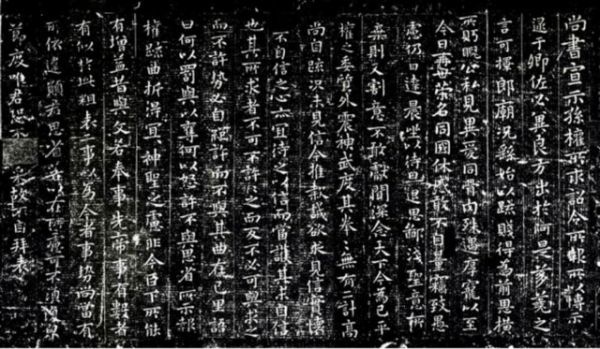 尚書宣示孫權所求詔令所報所以博示
逮于卿佐必冀良方出於阿是芻蕘之
言可擇郎廟況繇始以疏賤得為前恩橫
所盻睨公私見異愛同骨肉殊遇厚寵以至
今日再世榮名同國休慼敢不自量竊致愚
慮仍日達晨坐以待旦退思鄙淺聖意所
棄則又割意不敢獻聞深念天下今為已平
權之委質外震神武度其拳拳無有二計高
尚自疏況未見信今推款誠欲求見信實懷
不自信之心亦宜待之以信而當護其未自信
也其所求者不可不許許之而反不必可與求之
而不許勢必自絕許而不與其曲在己里語
曰何以罰與以奪何以怒許不與思省所示報
權疏曲折得宜宜神聖之慮非今臣下所能
有增益昔與文若奉事先帝事有數者
有似於此粗表二事以為今者事勢尚當有
所依違願君思省若以在所慮可不須復
節度唯君恐不采故不自拜表